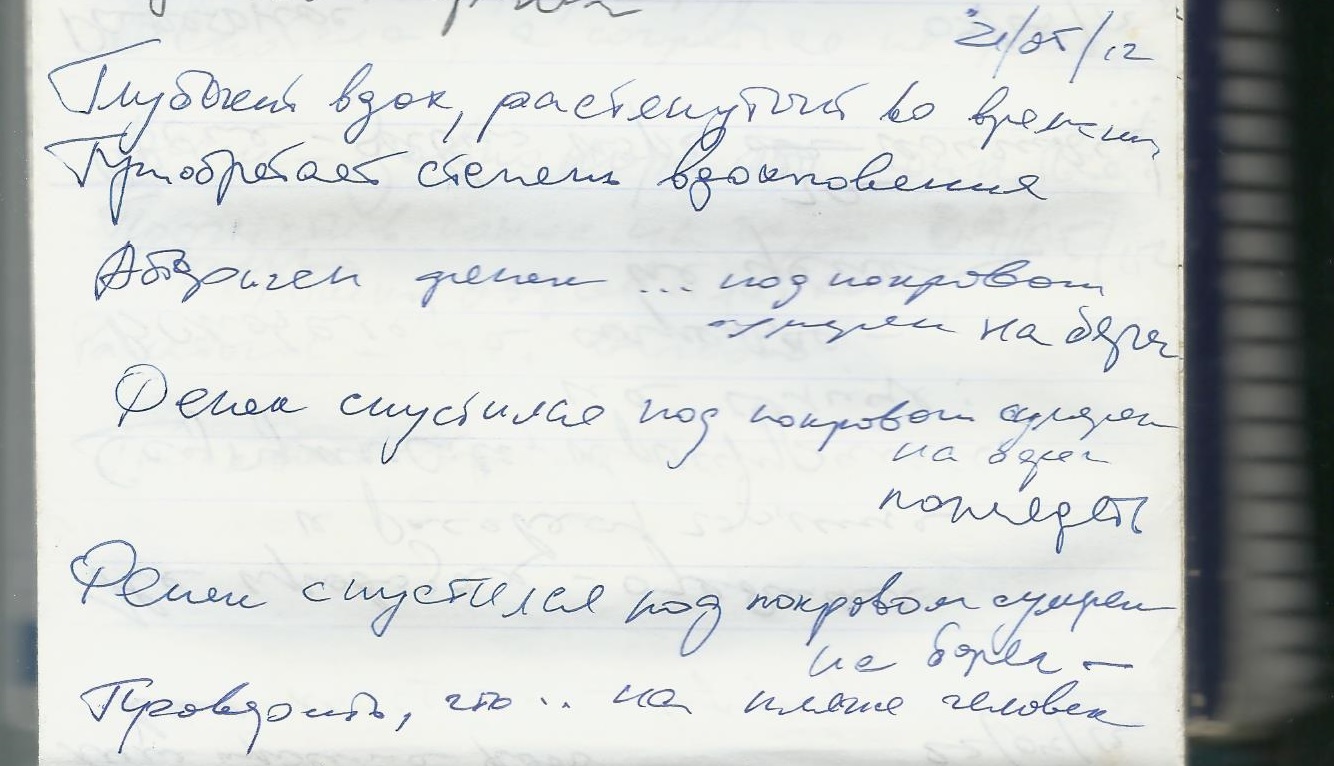 21/05/12
Глубокий вдох, растянутый во времени,
Приобретает степень вдохновения
Абориген Фенек ... под покровом
сумерек на берег
Фенек спустился под покровом сумерек
на берег
поглядеть
Фенек спустился под покровом сумерек
на берег –
Проведать, что .. на пляже человек